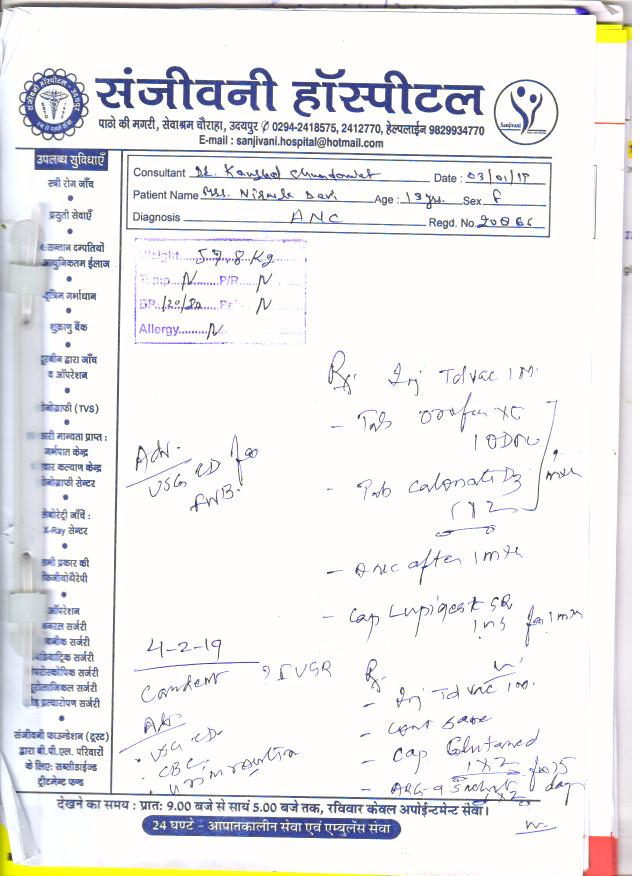 संजीवनी हॉस्पीटल
पाठो की मगरी, सेवाश्रम चौराहा, उदयपुर ✆ 0294-2418575, 2412770, हेल्पलाईन 9829934770
E-mail : sanjivani.hospital@hotmail.com
Sanjivani
उपलब्ध सुविधाएँ
स्त्री रोग जाँच
प्रसुती सेवाएँ
सन्तान दम्पतियों
आधुनिकतम ईलाज
कृत्रिम गर्भाधान
शुक्राणु बैंक
दूरबीन द्वारा जाँच
व ऑपरेशन
सोनोग्राफी (TVS)
सरकारी मान्यता प्राप्त :
गर्भपात केन्द्र
परिवार कल्याण केन्द्र
सोनोग्राफी सेन्टर
लेबोरेट्री जाँचें :
X-Ray सेन्टर
सभी प्रकार की
फिजीयोथैरेपी
ऑपरेशन
जनरल सर्जरी
सर्जरी
पीडियाट्रिक सर्जरी
लेप्रोस्कोपिक सर्जरी
यूरोलोजिकल सर्जरी
प्रत्यारोपण सर्जरी
संजीवनी फाउण्डेशन (ट्रस्ट)
द्वारा बी.पी.एल. परिवारों
के लिए: सब्सीडाईज्ड
ट्रीटमेन्ट फण्ड
Consultant Dr. Kaushal Chundawat Date : 03/01/19
Patient Name Mrs. Nirmala Devi Age : 19 yrs. Sex F
Diagnosis ANC Regd. No. 20866
Weight 57.8 Kg
Temp N P/R N
BP 120/80 N
Allergy N
Rx Inj Tdvac IM.
- Tab Orofer XT
1 OD
Adv.
USG CD for
FWB.
- Tab
1x2
- ANC after 1 mth
- Cap Lupigest SR
1 ns for 1 mth
4-2-19
? IUGR
Rx
- Inj Tdvac IM.
Adv:
- cont same
- USG CD
- CBC
- Urine routine
- Cap
1x2 for 15
- ARG-9 Sachet days
1x2
देखने का समय : प्रातः 9.00 बजे से सायं 5.00 बजे तक, रविवार केवल अपोईन्टमेन्ट सेवा।
24 घण्टे - आपातकालीन सेवा एवं एम्बुलेंस सेवा